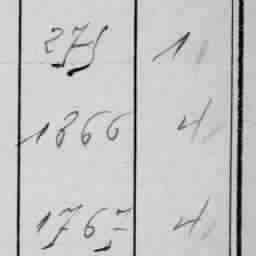 275 1
1866 4
1767 4